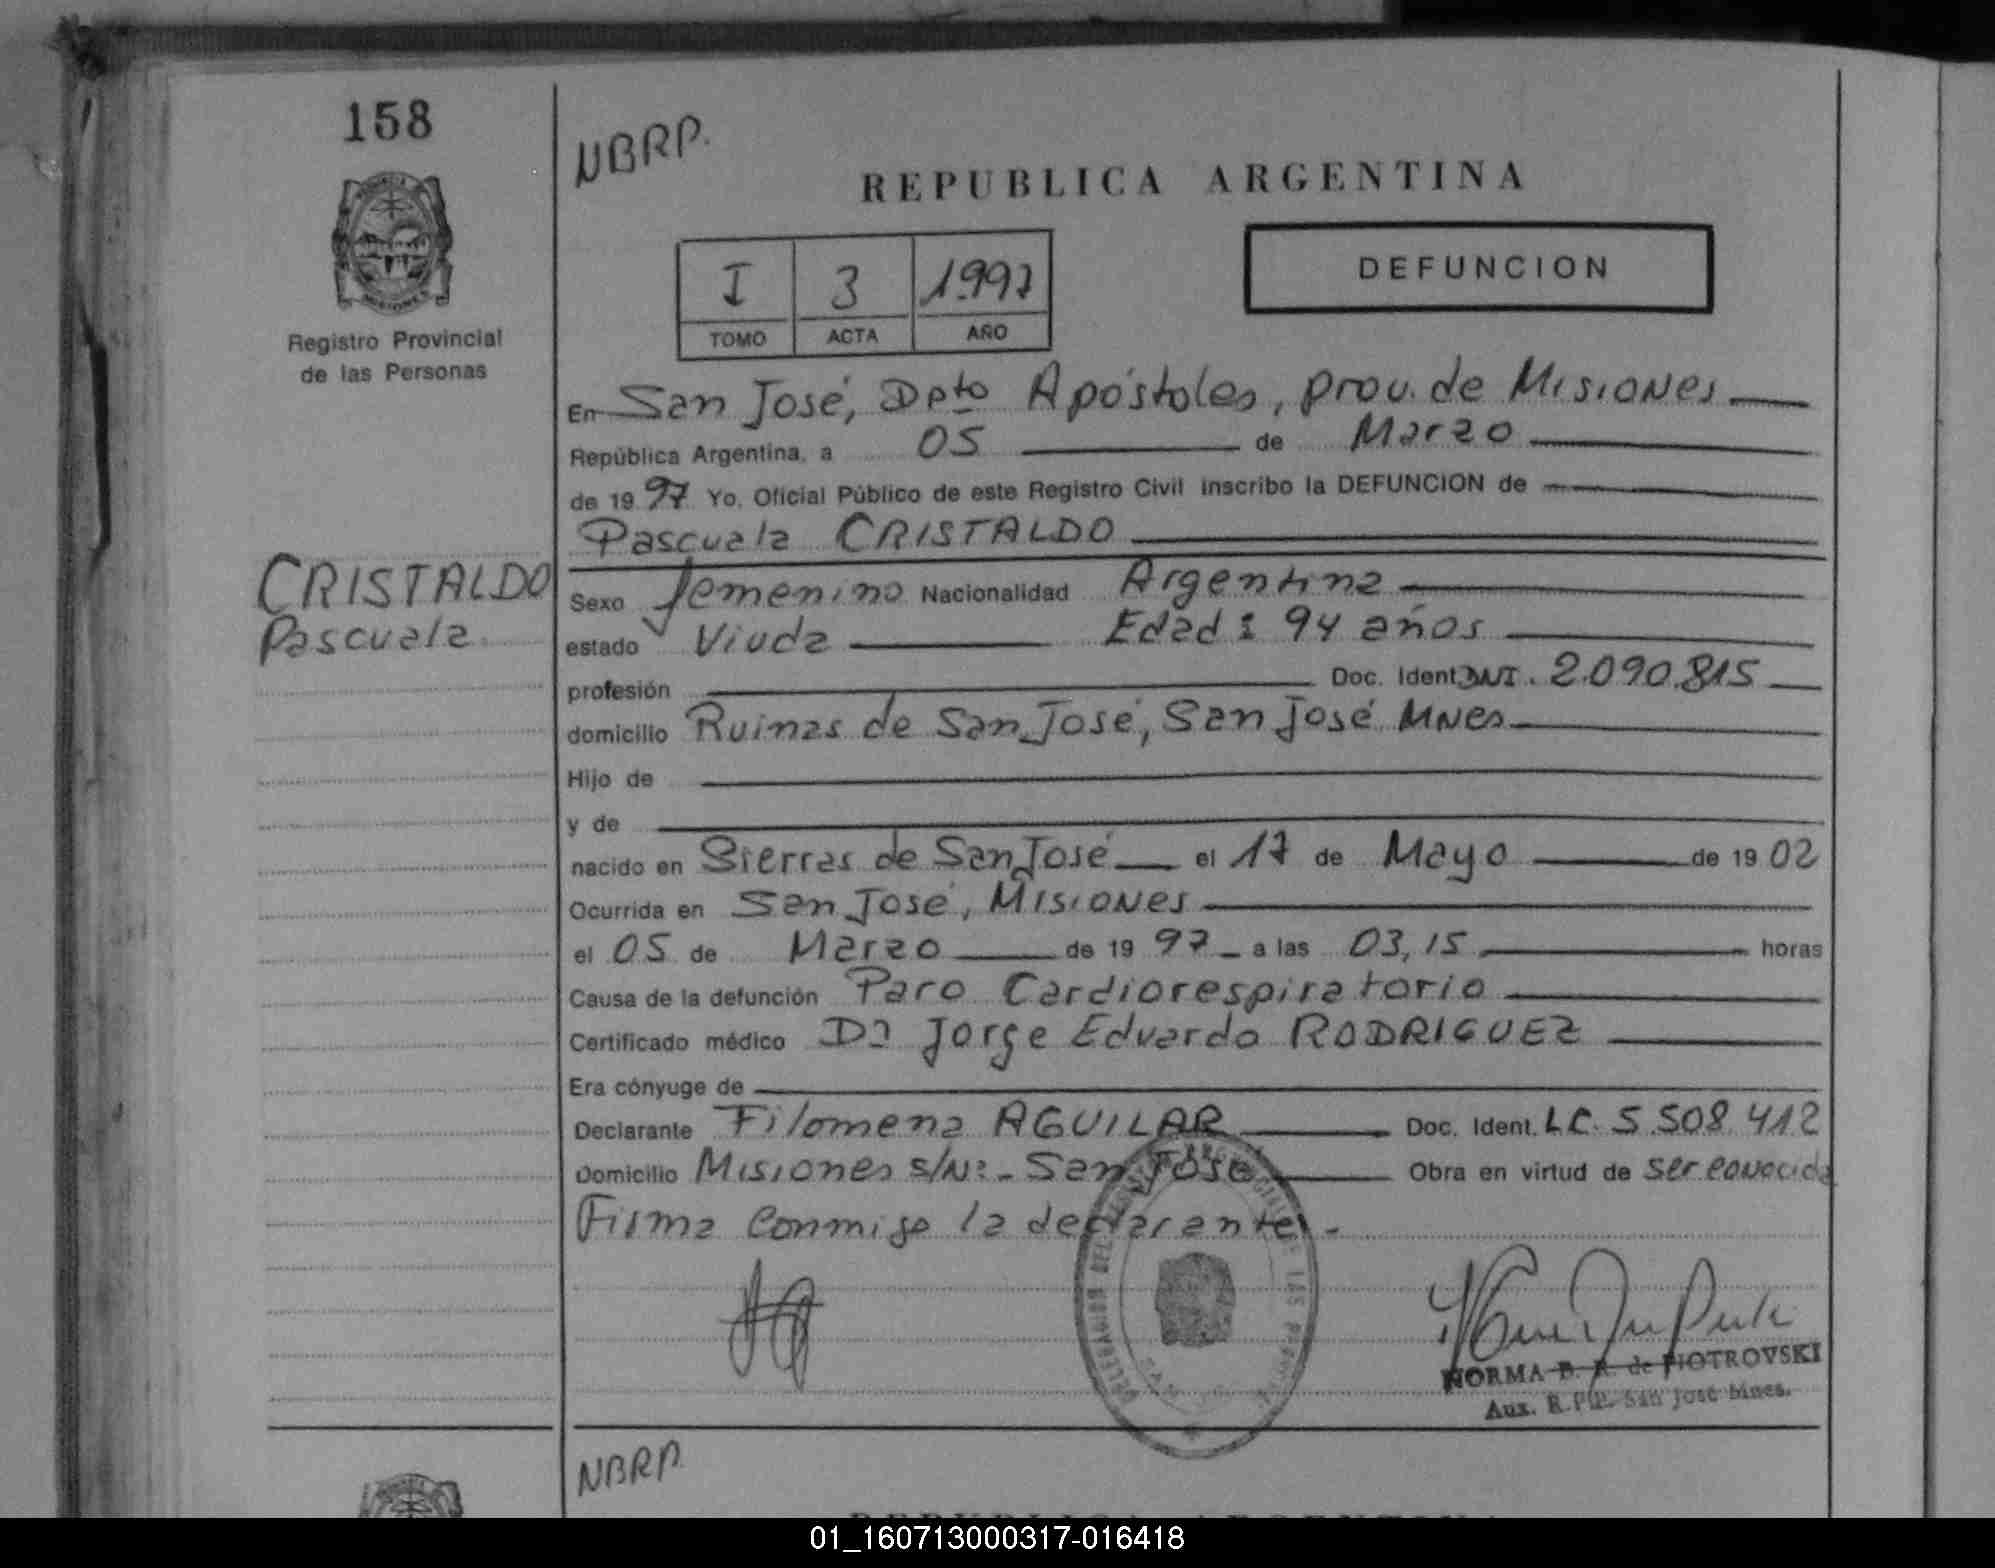 158
NBRP.
REPUBLICA ARGENTINA
I 3 1997
TOMO ACTA AÑO
DEFUNCION
MISIONES
Registro Provincial
de las Personas
En San José, Dpto Apóstoles, prov. de Misiones
República Argentina, a 05 de Marzo
de 19 97 Yo, Oficial Público de este Registro Civil inscribo la DEFUNCION de
Pascuala CRISTALDO
CRISTALDO
Pascuala
Sexo femenino Nacionalidad Argentina
estado Viuda Edad: 94 años
profesión Doc. Ident. DNI. 2.090.815
domicilio Ruinas de San José, San José Mnes
Hijo de
y de
nacido en Sierras de San José el 17 de Mayo de 19 02
Ocurrida en San José, Misiones
el 05 de Marzo de 19 97 a las 03,15 horas
Causa de la defunción Paro Cardiorespiratorio
Certificado médico Dr Jorge Eduardo RODRIGUEZ
Era cónyuge de
Declarante Filomena AGUILAR Doc. Ident. LC. 5.508.412
Domicilio Misiones s/Nº - San José Obra en virtud de ser conocida
Firma conmigo la declarante.-
NORMA B. R. de PIOTROVSKI
Aux. R.P.P. San José Mnes.
NBRP.
REPUBLICA ARGENTINA
01_160713000317-016418